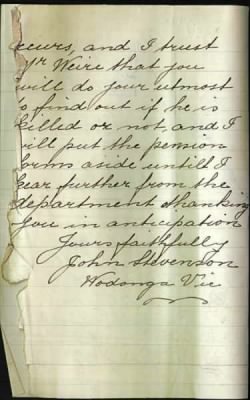 ccurs, and I trust
Mr Weire that you
will do your utmost
to find out if he is
killed or not, and I
will put the pension
forms aside untill I
hear further from the
department thanking
you in anticipation
Yours faithfully
John Stevenson
Wodonga Vic